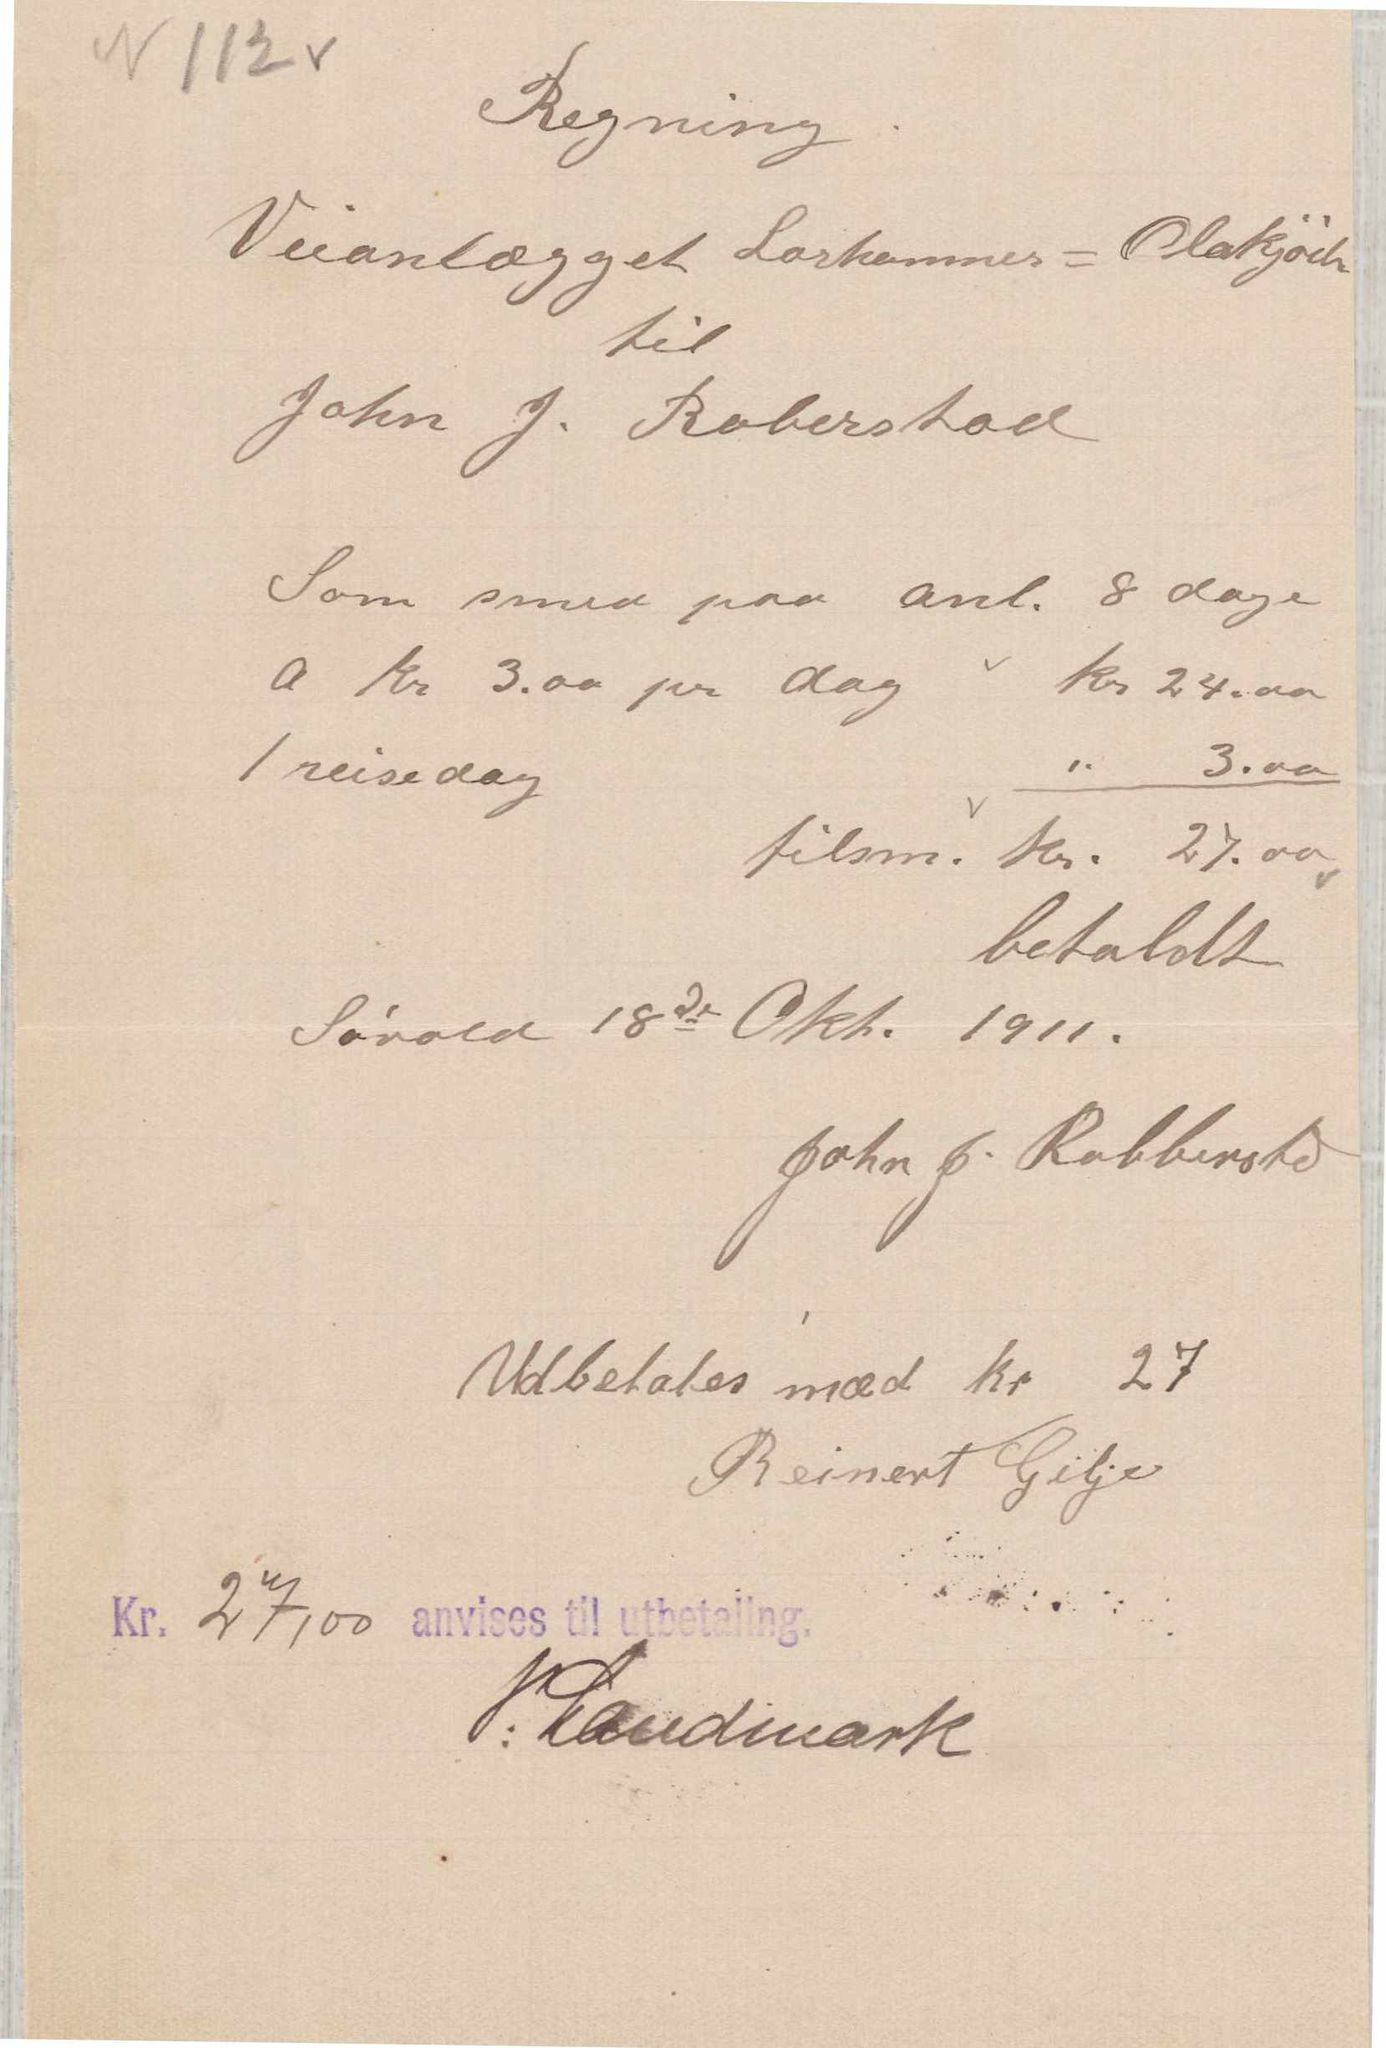 N 112 v
Regning.
Veianlægget Lorkammer = Olakjödn
til
John J. Roberstad
Som smed paa anl. 8 dage
a Kr 3.00 pr dag v Kr 24.00
1 reisedag " 3.00
tilsm. v Kr. 27.00 v
betaldt
18de Okt. 1911.
John J. Robberstd
Udbetales med kr 27
Reinert Gilje
Kr. 27,00 anvises til utbetaling.
Landmark